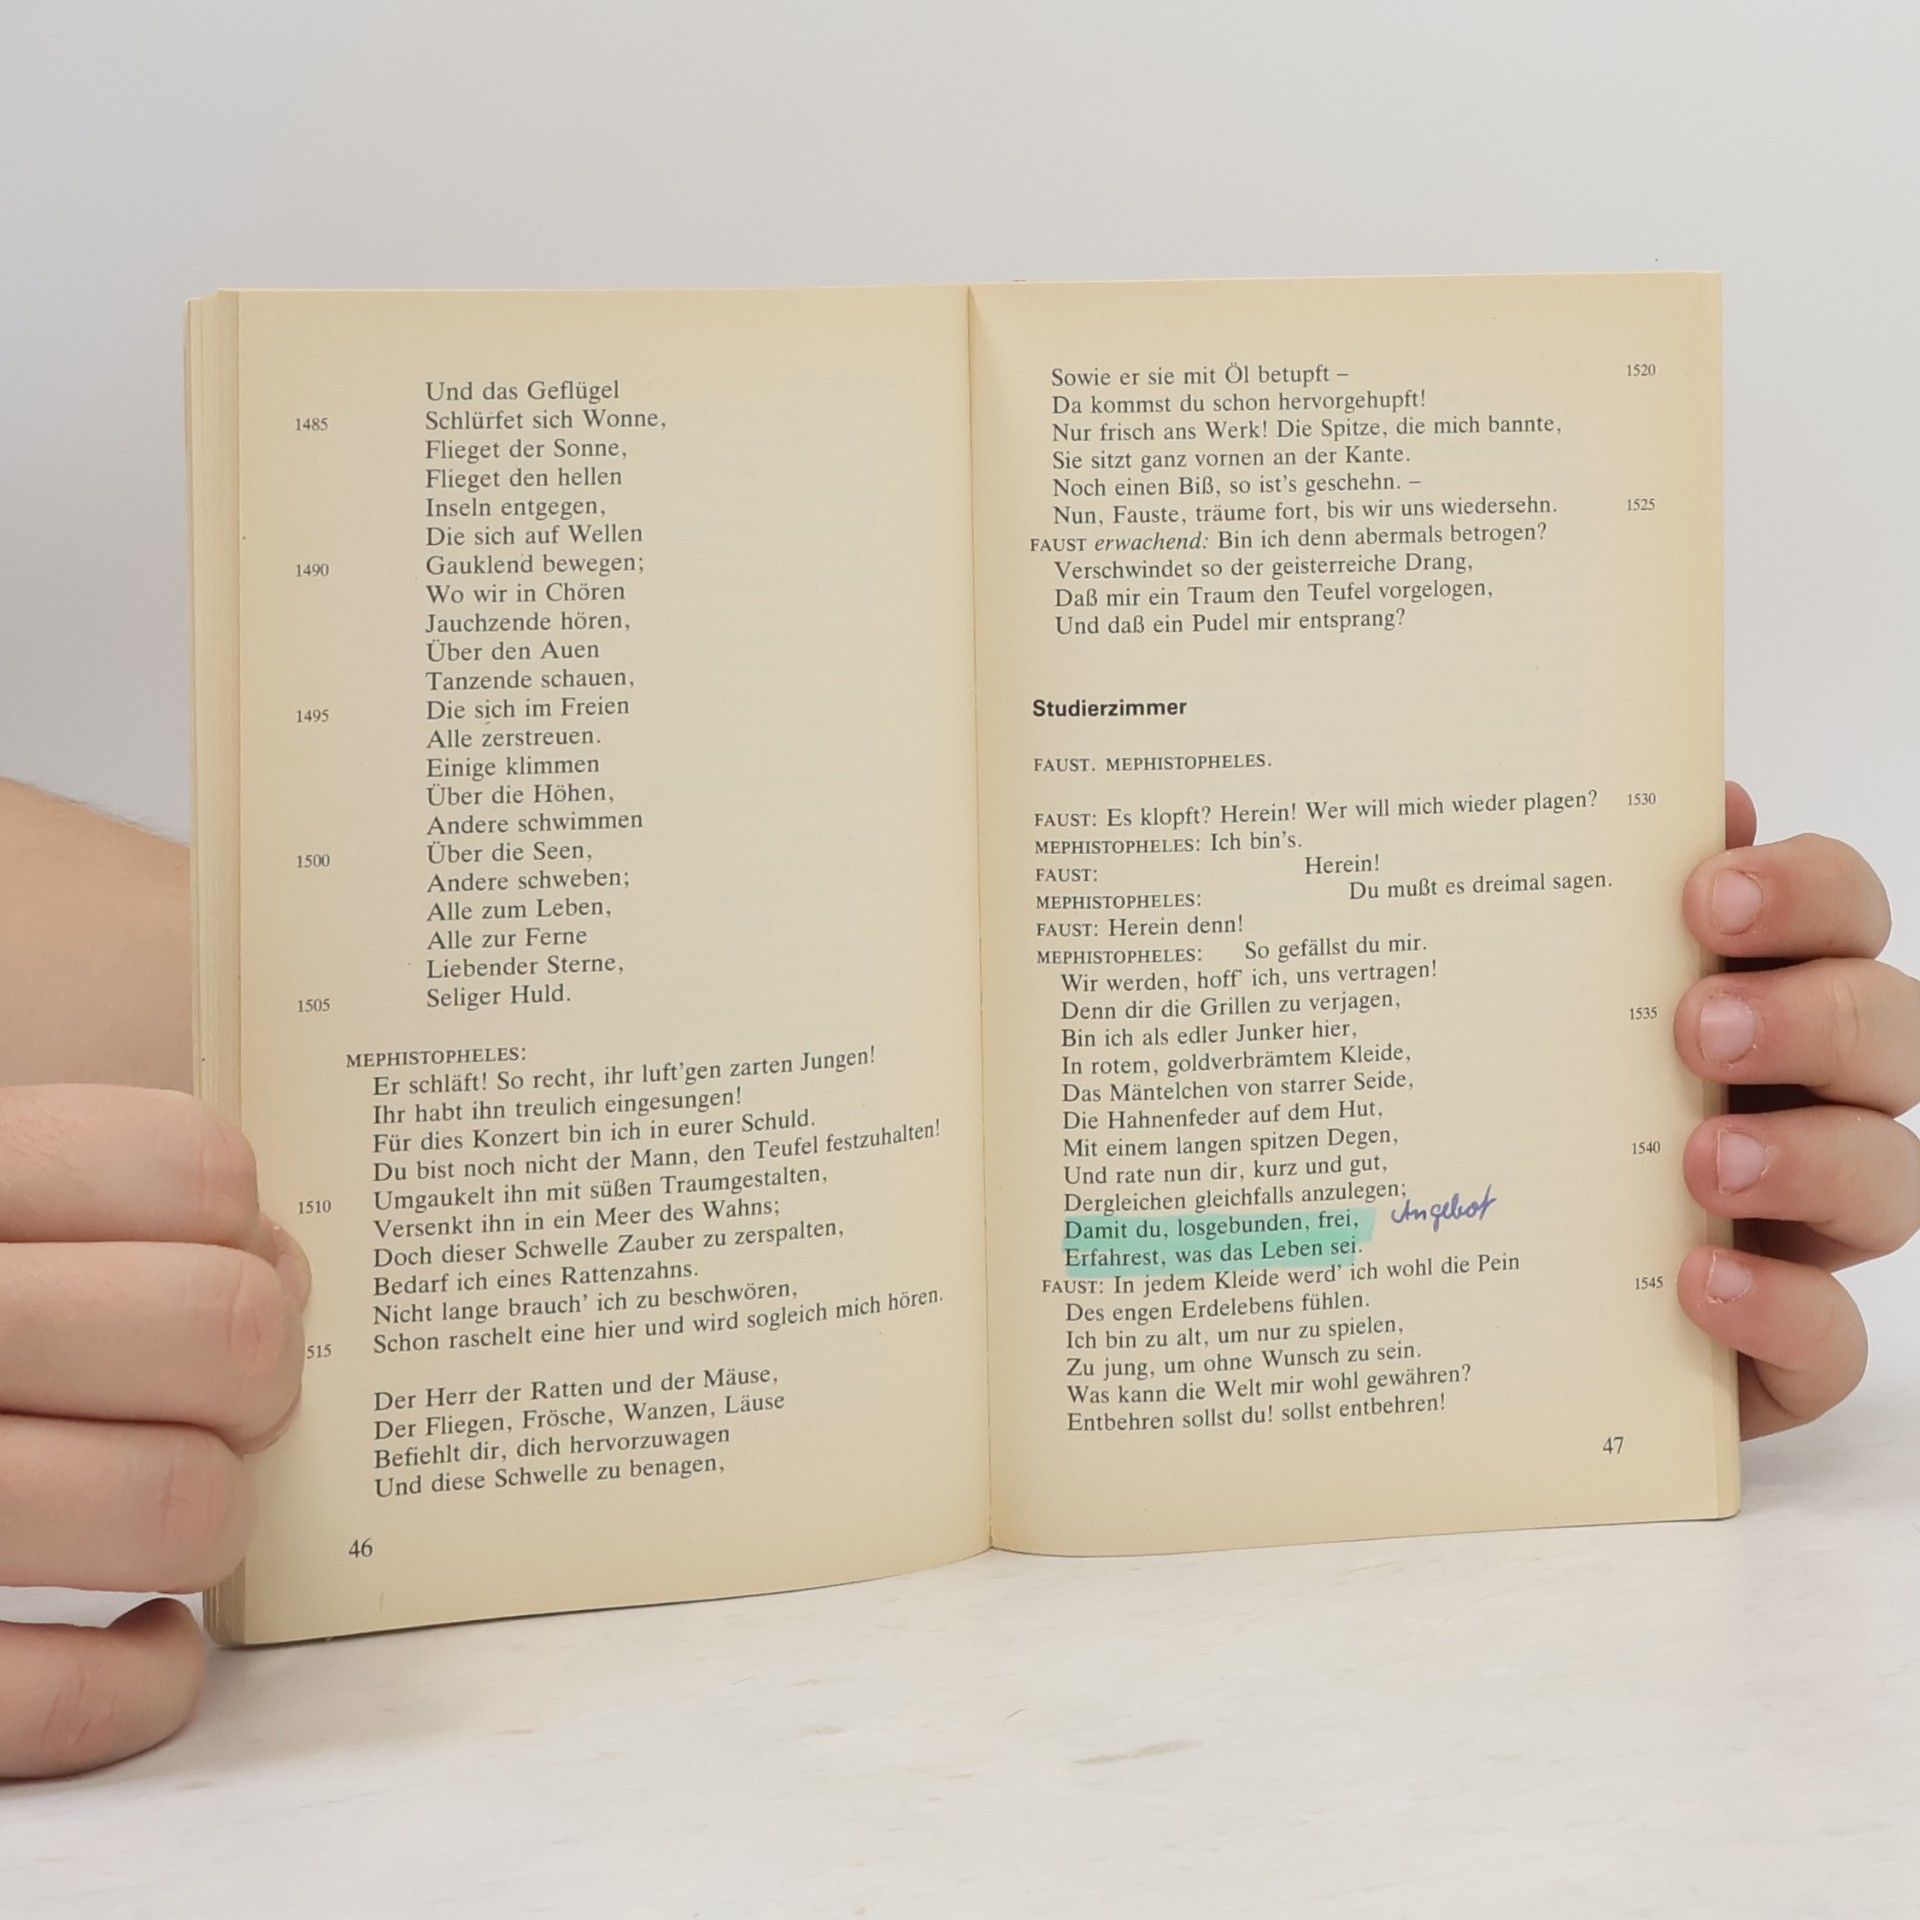 Und das Geflügel
1485 Schlürfet sich Wonne,
Flieget der Sonne,
Flieget den hellen
Inseln entgegen,
Die sich auf Wellen
1490 Gauklend bewegen;
Wo wir in Chören
Jauchzende hören,
Über den Auen
Tanzende schauen,
1495 Die sich im Freien
Alle zerstreuen.
Einige klimmen
Über die Höhen,
Andere schwimmen
1500 Über die Seen,
Andere schweben;
Alle zum Leben,
Alle zur Ferne
Liebender Sterne,
1505 Seliger Huld.
MEPHISTOPHELES:
Er schläft! So recht, ihr luft'gen zarten Jungen!
Ihr habt ihn treulich eingesungen!
Für dies Konzert bin ich in eurer Schuld.
Du bist noch nicht der Mann, den Teufel festzuhalten!
1510 Umgaukelt ihn mit süßen Traumgestalten,
Versenkt ihn in ein Meer des Wahns;
Doch dieser Schwelle Zauber zu zerspalten,
Bedarf ich eines Rattenzahns.
Nicht lange brauch' ich zu beschwören,
515 Schon raschelt eine hier und wird sogleich mich hören.
Der Herr der Ratten und der Mäuse,
Der Fliegen, Frösche, Wanzen, Läuse
Befiehlt dir, dich hervorzuwagen
Und diese Schwelle zu benagen,
46
Sowie er sie mit Öl betupft – 1520
Da kommst du schon hervorgehupft!
Nur frisch ans Werk! Die Spitze, die mich bannte,
Sie sitzt ganz vornen an der Kante.
Noch einen Biß, so ist's geschehn. –
Nun, Fauste, träume fort, bis wir uns wiedersehn. 1525
FAUST erwachend: Bin ich denn abermals betrogen?
Verschwindet so der geisterreiche Drang,
Daß mir ein Traum den Teufel vorgelogen,
Und daß ein Pudel mir entsprang?
Studierzimmer
FAUST. MEPHISTOPHELES.
FAUST: Es klopft? Herein! Wer will mich wieder plagen? 1530
MEPHISTOPHELES: Ich bin's.
FAUST: Herein!
MEPHISTOPHELES: Du mußt es dreimal sagen.
FAUST: Herein denn!
MEPHISTOPHELES: So gefällst du mir.
Wir werden, hoff' ich, uns vertragen!
Denn dir die Grillen zu verjagen,
Bin ich als edler Junker hier, 1535
In rotem, goldverbrämtem Kleide,
Das Mäntelchen von starrer Seide,
Die Hahnenfeder auf dem Hut,
Mit einem langen spitzen Degen,
Und rate nun dir, kurz und gut, 1540
Dergleichen gleichfalls anzulegen;
Damit du, losgebunden, frei, Angebot
Erfahrest, was das Leben sei.
FAUST: In jedem Kleide werd' ich wohl die Pein
Des engen Erdelebens fühlen. 1545
Ich bin zu alt, um nur zu spielen,
Zu jung, um ohne Wunsch zu sein.
Was kann die Welt mir wohl gewähren?
Entbehren sollst du! sollst entbehren!
47